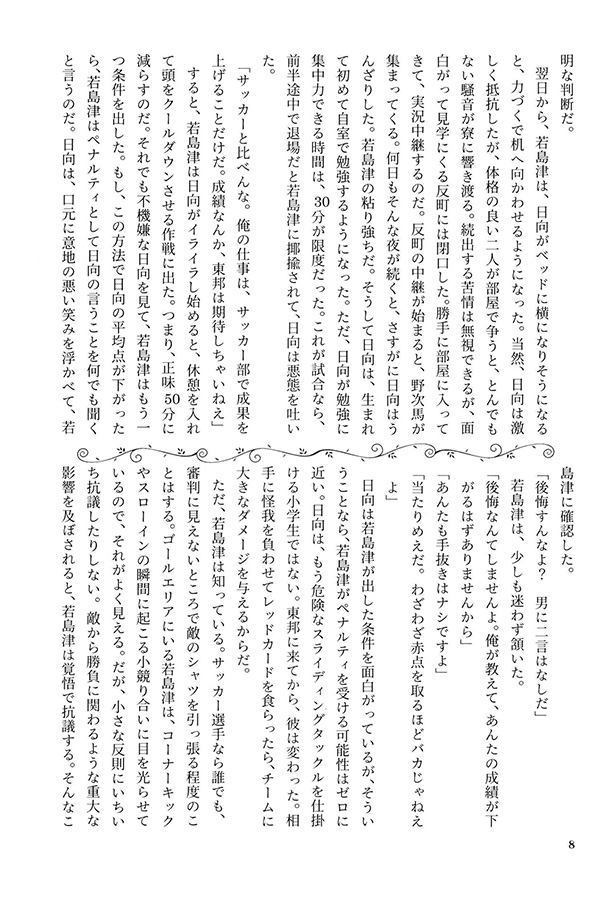 明な判断だ。
　翌日から、若島津は、日向がベッドに横になりそうになる
と、力づくで机へ向かわせるようになった。当然、日向は激
しく抵抗したが、体格の良い二人が部屋で争うと、とんでも
ない騒音が寮に響き渡る。続出する苦情は無視できるが、面
白がって見学にくる反町には閉口した。勝手に部屋に入って
きて、実況中継するのだ。反町の中継が始まると、野次馬が
集まってくる。何日もそんな夜が続くと、さすがに日向はう
んざりした。若島津の粘り強ちだ。そうして日向は、生まれ
て初めて自室で勉強するようになった。ただ、日向が勉強に
集中力できる時間は、30分が限度だった。これが試合なら、
前半途中で退場だと若島津に揶揄されて、日向は悪態を吐い
た。
「サッカーと比べんな。俺の仕事は、サッカー部で成果を
上げることだけだ。成績なんか、東邦は期待しちゃいねえ」
　すると、若島津は日向がイライラし始めると、休憩を入れ
て頭をクールダウンさせる作戦に出た。つまり、正味50分に
減らすのだ。それでも不機嫌な日向を見て、若島津はもう一
つ条件を出した。もし、この方法で日向の平均点が下がった
ら、若島津はペナルティとして日向の言うことを何でも聞く
と言うのだ。日向は、口元に意地の悪い笑みを浮かべて、若
島津に確認した。
「後悔すんなよ？　男に二言はなしだ」
　若島津は、少しも迷わず頷いた。
「後悔なんてしませんよ。俺が教えて、あんたの成績が下
がるはずありませんから」
「あんたも手抜きはナシですよ」
「当たりめえだ。わざわざ赤点を取るほどバカじゃねえ
よ」
　日向は若島津が出した条件を面白がっているが、そうい
うことなら、若島津がペナルティを受ける可能性はゼロに
近い。日向は、もう危険なスライディングタックルを仕掛
ける小学生ではない。東邦に来てから、彼は変わった。相
手に怪我を負わせてレッドカードを食らったら、チームに
大きなダメージを与えるからだ。
　ただ、若島津は知っている。サッカー選手なら誰でも、
審判に見えないところで敵のシャツを引っ張る程度のこ
とはする。ゴールエリアにいる若島津は、コーナーキック
やスローインの瞬間に起こる小競り合いに目を光らせて
いるので、それがよく見える。だが、小さな反則にいちい
ち抗議したりしない。敵から勝負に関わるような重大な
影響を及ぼされると、若島津は覚悟で抗議する。そんなこ
8